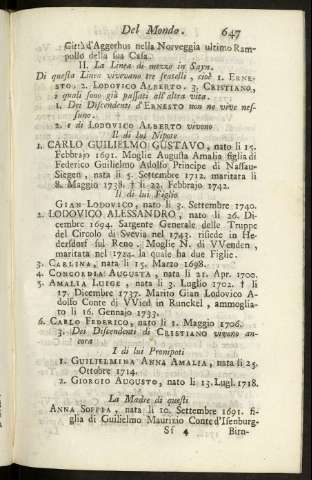 Del Mondo. 647
Città d'Aggerhus nella Norveggia ultimo Ram-
pollo della sua Casa.
II. La Linea di mezzo in Sayn.
Di questa Linea vivevano tre fratelli, cioè 1. ERNE-
STO. 2. LODOVICO ALBERTO. 3. CRISTIANO,
i quali sono già passati all'altra vita.
1. Dei Discendenti d'ERNESTO non ne vive nes-
suno.
2. e di LODOVICO ALBERTO vivono
Il di lui Nipote
1. CARLO GUILIELMO GUSTAVO, nato li 15.
Febbrajo 1691. Moglie Augusta Amalia figlia di
Federico Guilielmo Adolfo Principe di Nassau-
Siegen, nata li 5. Settembre 1712. maritata li
8. Maggio 1738. † li 22. Febbrajo 1742.
Il di lui Figlio
GIAN LODOVICO, nato li 3. Settembre 1740.
2. LODOVICO ALESSANDRO, nato li 26. Di-
cembre 1694. Sargente Generale delle Truppe
del Circolo di Svevia nel 1743. risiede in He-
dersdorf sul Reno. Moglie N. di VVenden,
maritata nel 1724. la quale ha due Figlie.
3. CARLINA, nata li 15. Marzo 1698.
4. CONCORDIA AUGUSTA, nata li 21. Apr. 1700.
5. AMALIA LUIGE, nata li 3. Luglio 1702. † li
17. Dicembre 1737. Marito Gian Lodovico A-
dolfo Conte di VVied in Runckel, ammoglia-
to li 16. Gennajo 1733.
6. CARLO FEDERICO, nato li 1. Maggio 1706.
3. Dei Discendenti di CRISTIANO vivono an-
cora
I di lui Pronipoti
1. GUILIELMINA ANNA AMALIA, nata li 25.
Ottobre 1714.
2. GIORGIO AUGUSTO, nato li 13. Lugl. 1718.
La Madre di questi
ANNA SOFFIA, nata li 10. Settembre 1691. fi-
glia di Guilielmo Maurizio Conte d'Isenburg-
Sſ 4 Birn-